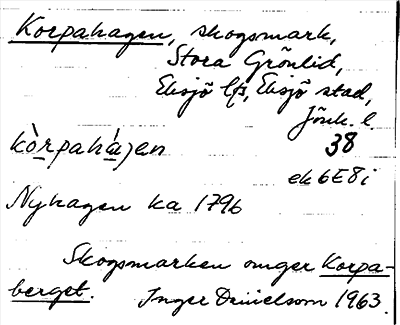 Korpahagen, skogsmark,
Stora Grönlid,
Eksjö lfs, Eksjö stad,
Jönk. l.
kòrpahá̱gen 38
ek 6E8i
Nyhagen ka 1796
Skogsmarken omger Korpa-
berget. Inger Danielsson 1963.